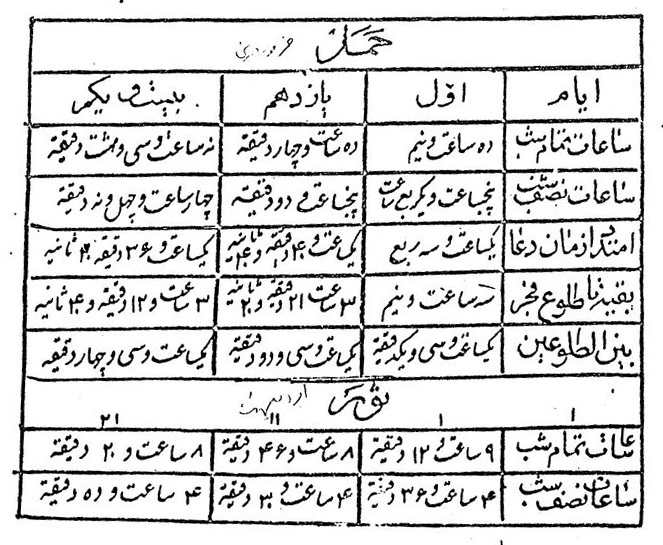 حمل فروردین
ایام اوّل یازدهم بیست و یکم
ساعات تمام شب ده ساعت و نیم ده ساعت و چهار دقیقه نه ساعت و سی و هشت دقیقه
ساعات نصف شب پنجساعت و یکربع ساعت پنجساعت و دو دقیقه چهار ساعت و چهل و نه دقیقه
امتداد زمان دعا یکساعت و سه ربع یکساعت و ۴۰ دقیقه و ۴۰ ثانیه یکساعت و ۳۶ دقیقه ۲۰ ثانیه
بقیه تا طلوع فجر سه ساعت و نیم ۳ ساعت ۲۱ دقیقه و ۲۰ ثانیه ۳ ساعت و ۱۲ دقیقه و ۴۰ ثانیه
بین الطلوعین یکساعت و سی و یکدقیقه یکساعت و سی و دو دقیقه یکساعت و سی و چهار دقیقه
ثور اردیبهشت
۱ ۱ ۱۱ ۲۱
ساعات تمام شب ۹ ساعت و ۱۲ دقیقه ۸ ساعت و ۴۶ دقیقه ۸ ساعت و ۲۰ دقیقه
ساعات نصف شب ۴ ساعت و ۳۶ دقیقه ۴ ساعت و ۲۰ دقیقه ۴ ساعت و ده دقیقه